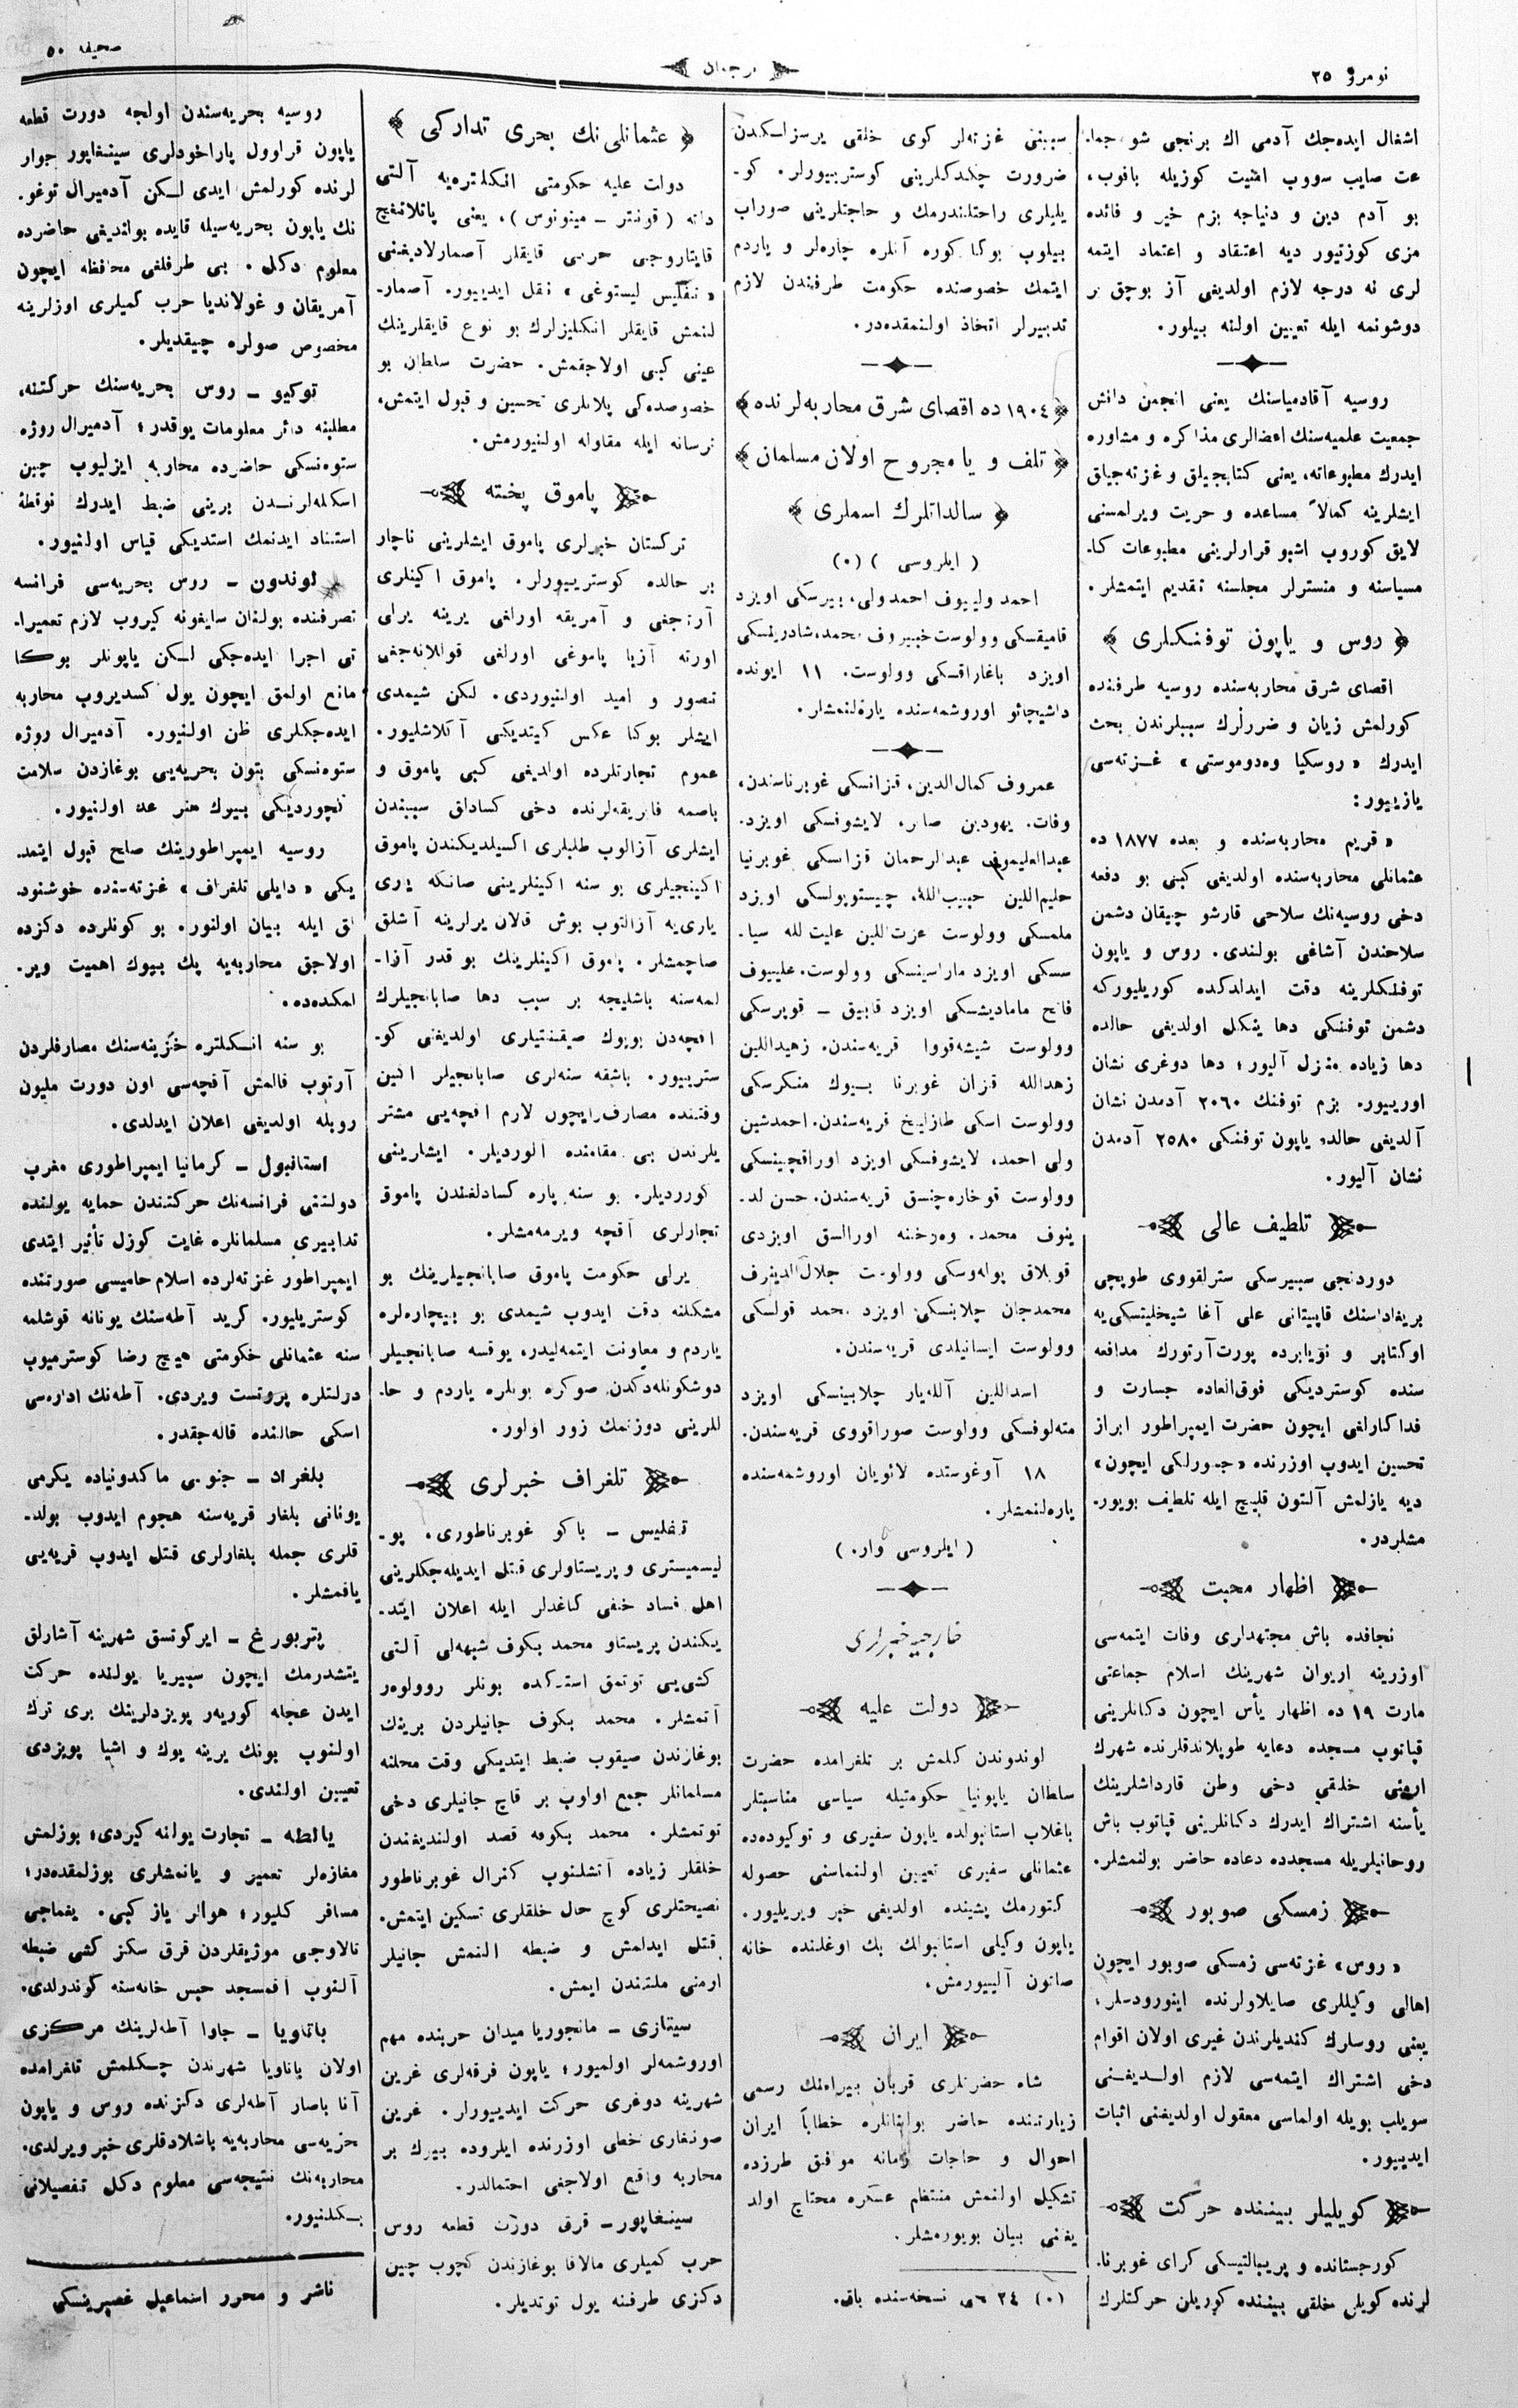 نومرو ٢٥
ترجمان
صحیفه ٥٠
اشغال ایده‌جك آدمی اك برنجی شو جما-
عت صایب سووب اشیت كوزیله باقوب،
بو آدم دین و دنیاجه بزم خیر و فائده
مزی كوزتیور دیه اعتقاد و اعتماد ایتمه
لری نه درجه لازم اولدیغی آز بوچق بر
دوشونمه ایله تعیین اولنه بیلور.
روسیه آقادمیاسنك یعنی انجمن دانش
جمعیت علمیه‌سنك اعضالری مذاكره و مشاوره
ایدرك مطبوعاته، یعنی كتابجیلق و غزته‌جیلق
ایشلرینه كمالاً مساعده و حریت ویرلمسنی
لایق كوروب اشبو قرارلرینی مطبوعات كا-
میساسنه و منسترلر مجلسنه تقدیم ایتمشلر.
﴿ روس و یاپون توفنكلری ﴾
اقصای شرق محاربه‌سنده روسیه طرفنده
كورلمش زیان و ضررلرك سببلرندن بحث
ایدرك «روسكیا وه‌دوموستی» غزته‌سی
یازییور:
«قریم محاربه‌سنده و بعده ١٨٧٧ ده
عثمانلی محاربه‌سنده اولدیغی كبی بو دفعه
دخی روسیه‌نك سلاحی قارشو چیقان دشمن
سلاحندن آشاغی بولندی. روس و یاپون
توفنكلرینه دقت ایدلدكده كوریلیوركه
دشمن توفنكی دها ینكل اولدیغی حالده
دها زیاده منزل آلیور؛ دها دوغری نشان
اورییور. بزم توفنك ٢٠٦٠ آدمدن نشان
آلدیغی حالده یاپون توفنكی ٢٥٨٠ آدمدن
نشان آلیور.
تلطیف عالی
دوردنجی سیبیرسكی سترلقووی طوپچی
بریغاداسنك قاپیتانی علی آغا شیخلینسكی‌یه
اوكتابر و نویابرده پورت آرتورك مدافعه
سنده كوستردیكی فوق‌العاده جسارت و
فداكارلغی ایچون حضرت ایمپراطور ابراز
تحسین ایدوب اوزرنده «جسورلكی ایچون»
دیه یازلمش آلتون قلیچ ایله تلطیف بویور-
مشلردر.
اظهار محبت
نجافده باش مجتهداری وفات ایتمه‌سی
اوزرینه اریوان شهرینك اسلام جماعتی
مارت ١٩ ده اظهار یأس ایچون دكانلرینی
قپاتوب مسجده دعایه طوپلاندقلرنده شهرك
ارمنی خلقی دخی وطن قارداشلرینك
یأسنه اشتراك ایدرك دكانلرینی قپاتوب باش
روحانیلریله مسجدده دعاده حاضر بولنمشلر.
زمسكی صوبور
«روس» غزته‌سی زمسكی صوبور ایچون
اهالی وكیللری صایلاولرنده اینورودسلر،
یعنی روسلرك كندیلرندن غیری اولان اقوام
دخی اشتراك ایتمه‌سی لازم اولدیغنی
سویلب بویله اولماسی معقول اولدیغنی اثبات
ایدییور.
كویلیلر بیننده حركت
كورجستانده و پریبالتیسكی كرای غوبرنا-
لرنده كویلی خلقی بیننده كوریلن حركتلرك
سببنی غزته‌لر كوی خلقی یرسزلكندن
ضرورت چكدكلرینی كوسترییورلر. كو-
یلیلری راحتلندرمك و حاجتلرینی صوراب
بیلوب بوكا كوره آنلره چاره‌لر و یاردم
ایتمك خصوصنده حكومت طرفندن لازم
تدبیرلر اتخاذ اولنمقده‌در.
﴿ ١٩٠٤ ده اقصای شرق محاربه‌لرنده ﴾
﴿ تلف و یا مجروح اولان مسلمان ﴾
﴿ سالداتلرك اسملری ﴾
( ایلروسی ) (٠)
احمد ولییوف احمدولی، بیرسكی اویزد
قامیقسكی وولوست خیبیروف محمد، شادرینسكی
اویزد باغاراقسكی وولوست. ١١ ایونده
داشیچائو اوروشمه‌سنده یاره‌لنمشلر.
عمروف كمال‌الدین، قزانسكی غوبرناسندن،
وفات. یهودین صابر، لایشوفسكی اویزد.
عبدالعلیموف عبدالرحمان قزانسكی غوبرنیا
حلیم‌اللین حبیب‌الله، چیستوپولسكی اویزد
ملمسكی وولوست عزت‌اللین علیت‌لله سیا-
سسكی اویزد ماراسینسكی وولوست. علییوف
فاتح مامادیشسكی اویزد قابیق – قوپرسكی
وولوست شیشه‌قووا قریه‌سندن. زهیداللین
زهدالله قزان غوبرنا بییوك منكرسكی
وولوست اسكی طازلیخ قریه‌سندن. احمدشین
ولی احمد، لایشوفسكی اویزد اوراقچینسكی
وولوست قوخاره‌چنسق قریه‌سندن. حسن لد-
ینوف محمد. وه‌رخنه اورالسق اویزدی
قوبلاق پوله‌وسكی وولوست جلال‌الدینوف
محمدجان چلابنسكی اویزد محمد قولسكی
وولوست ایسانیلدی قریه‌سندن.
اسداللین آلله‌یار چلابینسكی اویزد
مته‌لوفسكی وولوست صوراقووی قریه‌سندن.
١٨ آوغوستده لائویان اوروشمه‌سنده
یاره‌لنمشلر.
( ایلروسی وار. )
خارجیه خبرلری
دولت علیه
لوندوندن كلمش بر تلغرامده حضرت
سلطان یاپونیا حكومتیله سیاسی مناسبتلر
باغلاب استانبولده یاپون سفیری و توكیوده‌ده
عثمانلی سفیری تعیین اولنماسنی حصوله
كتورمك پشینده اولدیغی خبر ویریلیور.
یاپون وكیلی استانبولك بك اوغلنده خانه
صاتون آلییورمش.
ایران
شاه حضرتلری قربان بیرامنك رسمی
زیارتنده حاضر بولنانلره خطاباً ایران
احوال و حاجات زمانه موافق طرزده
تشكیل اولنمش منتظم عسكره محتاج اولد
یغنی بیان بویورمشلر.
(٠) ٢٤ نجی نسخه‌سنده باق.
﴿ عثمانلی‌نك بحری تداركی ﴾
دولت علیه حكومتی انكلتره‌یه آلتی
دانه ( قونتر – مینونوس )، یعنی پاتلاتغیچ
قایتاروجی حربی قایقلر آصمارلادیغنی
«تفلیس لیستوغی» نقل ایدییور. آصمار-
لنمش قایقلر انكلیزلرك بو نوع قایقلرینك
عینی كبی اولاجقمش. حضرت سلطان بو
خصوصده‌كی پلانلری تحسین و قبول ایتمش،
ترسانه ایله مقاوله اولنیورمش.
پاموق پخته
تركستان خبرلری پاموق ایشلرینی ناچار
بر حالده كوسترییورلر. پاموق اكینلری
آرتجغی و آمریقه اورلغی یرینه یرلی
اورته آزیا پاموغی اورلغی قوللانه‌جغی
تصور و امید اولنیوردی. لكن شیمدی
ایشلر بوكا عكس كیتدیكی آكلاشلیور.
عموم تجارتلرده اولدیغی كبی پاموق و
باصمه فابریقه‌لرنده دخی كسادلق سببندن
ایشلری آزالوب طلبلری اكسیلدیكندن پاموق
اكینجیلری بو سنه اكینلرینی صانكه یاری
یاری‌یه آزالتوب بوش قالان یرلرینه آشلق
صاچمشلر. پاموق اكینلرینك بو قدر آزا-
لمه‌سنه باشلیجه بر سبب دها صابانجیلرك
اقچه‌دن بویوك صیقنتیلری اولدیغنی كو-
سترییور. باشقه سنه‌لری صابانجیلر اكین
وقتنده مصارف ایچون لازم اقچه‌یی مشتر
یلرندن پی مقامنده آلوردیلر. ایشلرینی
كوردیلر. بو سنه پاره كسادلغندن پاموق
تجارلری آقچه ویرمه‌مشلر.
یرلی حكومت پاموق صابانجیلرینك بو
مشكلنه دقت ایدوب شیمدی بو بیچاره‌لره
یاردم و معاونت ایتمه‌لیدر. یوقسه صابانجیلر
دوشكونله‌دكدن صوكره بونلره یاردم و حا-
للرینی دوزتمك زور اولور.
تلغراف خبرلری
تفلیس – باكو غوبرناطوری، پو-
لیسمیستری و پریستاولری قتل ایدیله‌جكلرینی
اهل فساد خفی كاغدلر ایله اعلان ایتد-
یكندن پریستاو محمد بكوف شبهه‌لی آلتی
كشی‌یی توتمق استدكده بونلر روولوور
آتمشلر. محمد بكوف جانیلردن برینك
بوغازندن صیقوب ضبط ایتدیكی وقت محلنه
مسلمانلر جمع اولوب بر قاچ جانیلری دخی
توتمشلر. محمد بكوفه قصد اولندیغندن
خلقلر زیاده آتشلنوب كنرال غوبرناطور
نصیحتلری كوچ حال خلقلری تسكین ایتمش.
قتل ایدلمش و ضبطه النمش جانیلر
ارمنی ملتندن ایمش.
سیتازی – مانجوریا میدان حربنده مهم
اوروشمه‌لر اولمیور؛ یاپون فرقه‌لری غرین
شهرینه دوغری حركت ایدییورلر. غرین
صونغاری خطی اوزرنده ایلروده بییوك بر
محاربه واقع اولاجغی احتمالدر.
سینغاپور – قرق دورت قطعه روس
حرب كمیلری مالاقا بوغازندن كچوب چین
دكزی طرفنه یول توتدیلر.
روسیه بحریه‌سندن اولجه دورت قطعه
یاپون قراوول پاراخودلری سینغاپور جوار
لرنده كورلمش ایدی لكن آدمیرال توغو-
نك یاپون بحریه‌سیله قایده بولندیغی حاضرده
معلوم دكل. بی طرفلغی محافظه ایچون
آمریقان و غوللاندیا حرب كمیلری اوزلرینه
مخصوص صولره چیقدیلر.
توكیو – روس بحریه‌سنك حركتنه،
مطلبنه دائر معلومات یوقدر؛ آدمیرال روژه
ستوه‌نسكی حاضرده محاربه ایزلیوب چین
اسكله‌لرندن برینی ضبط ایدرك نوقطهٔ
استناد ایدنمك استدیكی قیاس اولنیور.
لوندون – روس بحریه‌سی فرانسه
تصرفنده بولنان سایغونه كیروب لازم تعمیرا-
تی اجرا ایده‌جكی لكن یاپونلر بوكا
مانع اولمق ایچون یول كسدیروپ محاربه
ایده‌جكلری ظن اولنیور. آدمیرال روژه
ستوه‌نسكی بتون بحریه‌یی بوغازدن سلامت
كچوردیكی بییوك هنر عد اولنیور.
روسیه ایمپراطورینك صلح قبول ایتمد-
یكی «دایلی تلغراف» غزته‌سنده خوشنود-
لق ایله بیان اولنور. بو كونلرده دكزده
اولاجق محاربه‌یه پك بییوك اهمیت ویر-
لمكده‌ده.
بو سنه انكلتره خزینه‌سنك مصارفلردن
آرتوب قالمش آقچه‌سی اون دورت ملیون
روبله اولدیغی اعلان ایدلدی.
استانبول – كرمانیا ایمپراطوری مغرب
دولتنی فرانسه‌نك حركتندن حمایه یولنده
تدابیری مسلمانلره غایت كوزل تأثیر ایتدی
ایمپراطور غزته‌لرده اسلام حامیسی صورتنده
كوستریلیور. كرید آطه‌سنك یونانه قوشلمه
سنه عثمانلی حكومتی هیچ رضا كوسترمیوب
دولتلره پروتست ویردی. آطه‌نك اداره‌سی
اسكی حالنده قاله‌جقدر.
بلغراد – جنوبی ماكدونیاده یكرمی
یونانی بلغار قریه‌سنه هجوم ایدوب بولد-
قلری جمله بلغارلری قتل ایدوب قریه‌یی
یاقمشلر.
پتربورغ – ایركوتسق شهرینه آشارلق
یتشدرمك ایچون سیبیریا یولنده حركت
ایدن عجله كوریه‌ر پویزدلرینك بری ترك
اولنوب بونك یرینه یوك و اشیا پویزدی
تعیین اولندی.
یالطه – تجارت یولنه كیردی؛ بوزلمش
مغازه‌لر تعمیر و یانمشلری یوزلمقده‌در؛
مسافر كلیور؛ هوالر یاز كبی. یغماجی
تالاوجی موژیقلردن قرق سكز كشی ضبطه
آلنوب اقمسجد حبس خانه‌سنه كوندرلدی.
باتاویا – جاوا آطه‌لرینك مركزی
اولان باتاویا شهرندن چكلمش تلغرامده
آنا باصار آطه‌لری دكزنده روس و یاپون
محاربه‌یه باشلادقلری خبر ویرلدی.
محاربه‌نك نتیجه‌سی معلوم دكل تفصیلاتی
بكلنیور.
ناشر و محرر اسماعیل غصپرینسكی